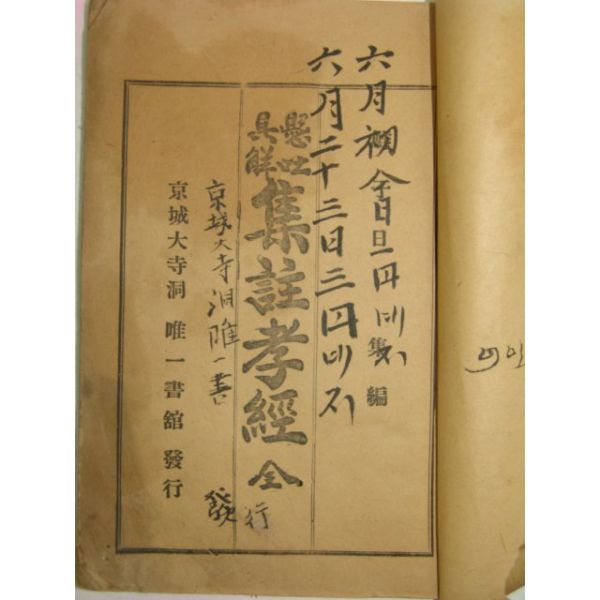 六月初
集編
六月二十三日三円바지
懸吐
具解
集註孝經 全
京城大寺洞唯一書
發行
京城大寺洞 唯一書館 發行